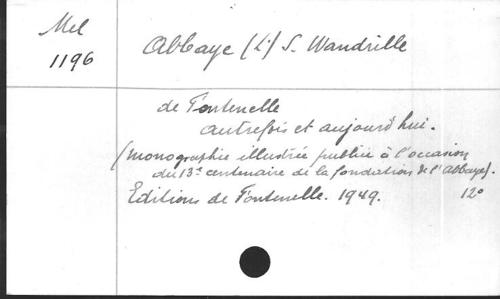 Mel
1196
Abbaye (L') S. Wandrille
de Fontenelle
autrefois et aujourd'hui.
(monographie illustrée publiée à l'occasion
du 13e centenaire de la fondation de l'Abbaye).
Editions de Fontenelle. 1949. 12°